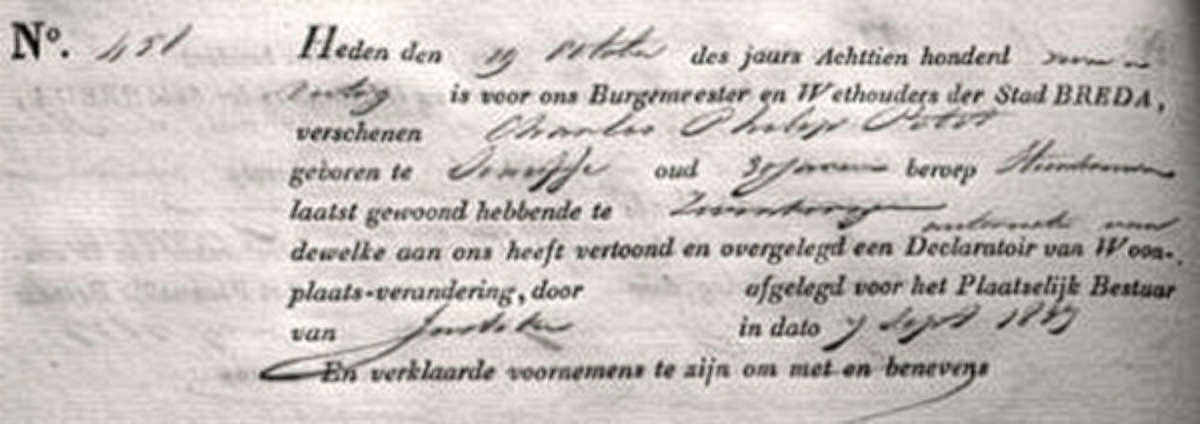 Nº. 451 Heden den 29 October des jaars Achttien honderd
veertig is voor ons Burgemeester en Wethouders der Stad BREDA,
verschenen Charles Philip
geboren te oud 30 jaren beroep
laatst gewoond hebbende te Zevenbergen
dewelke aan ons heeft vertoond en overgelegd een Declaratoir van Woon-
plaats-verandering, door afgelegd voor het Plaatselijk Bestuur
van in dato 7 Sept 1847
En verklaarde voornemens te zijn om met en benevens